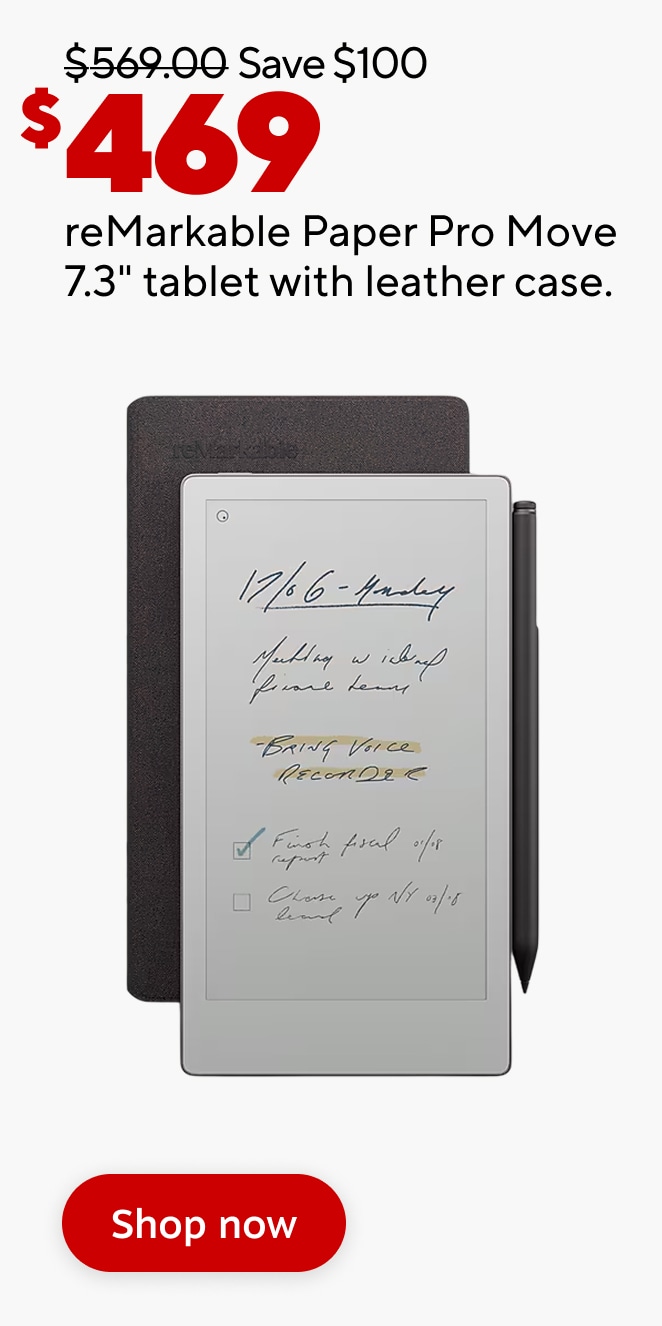 $569.00 Save $100
$469
reMarkable Paper Pro Move
7.3" tablet with leather case.
reMarkable
17/06 - Monday
Meeting w
finance team
- BRING VOICE
RECORDER
Finish fiscal 01/08
report
Chase up NY 03/08
Shop now